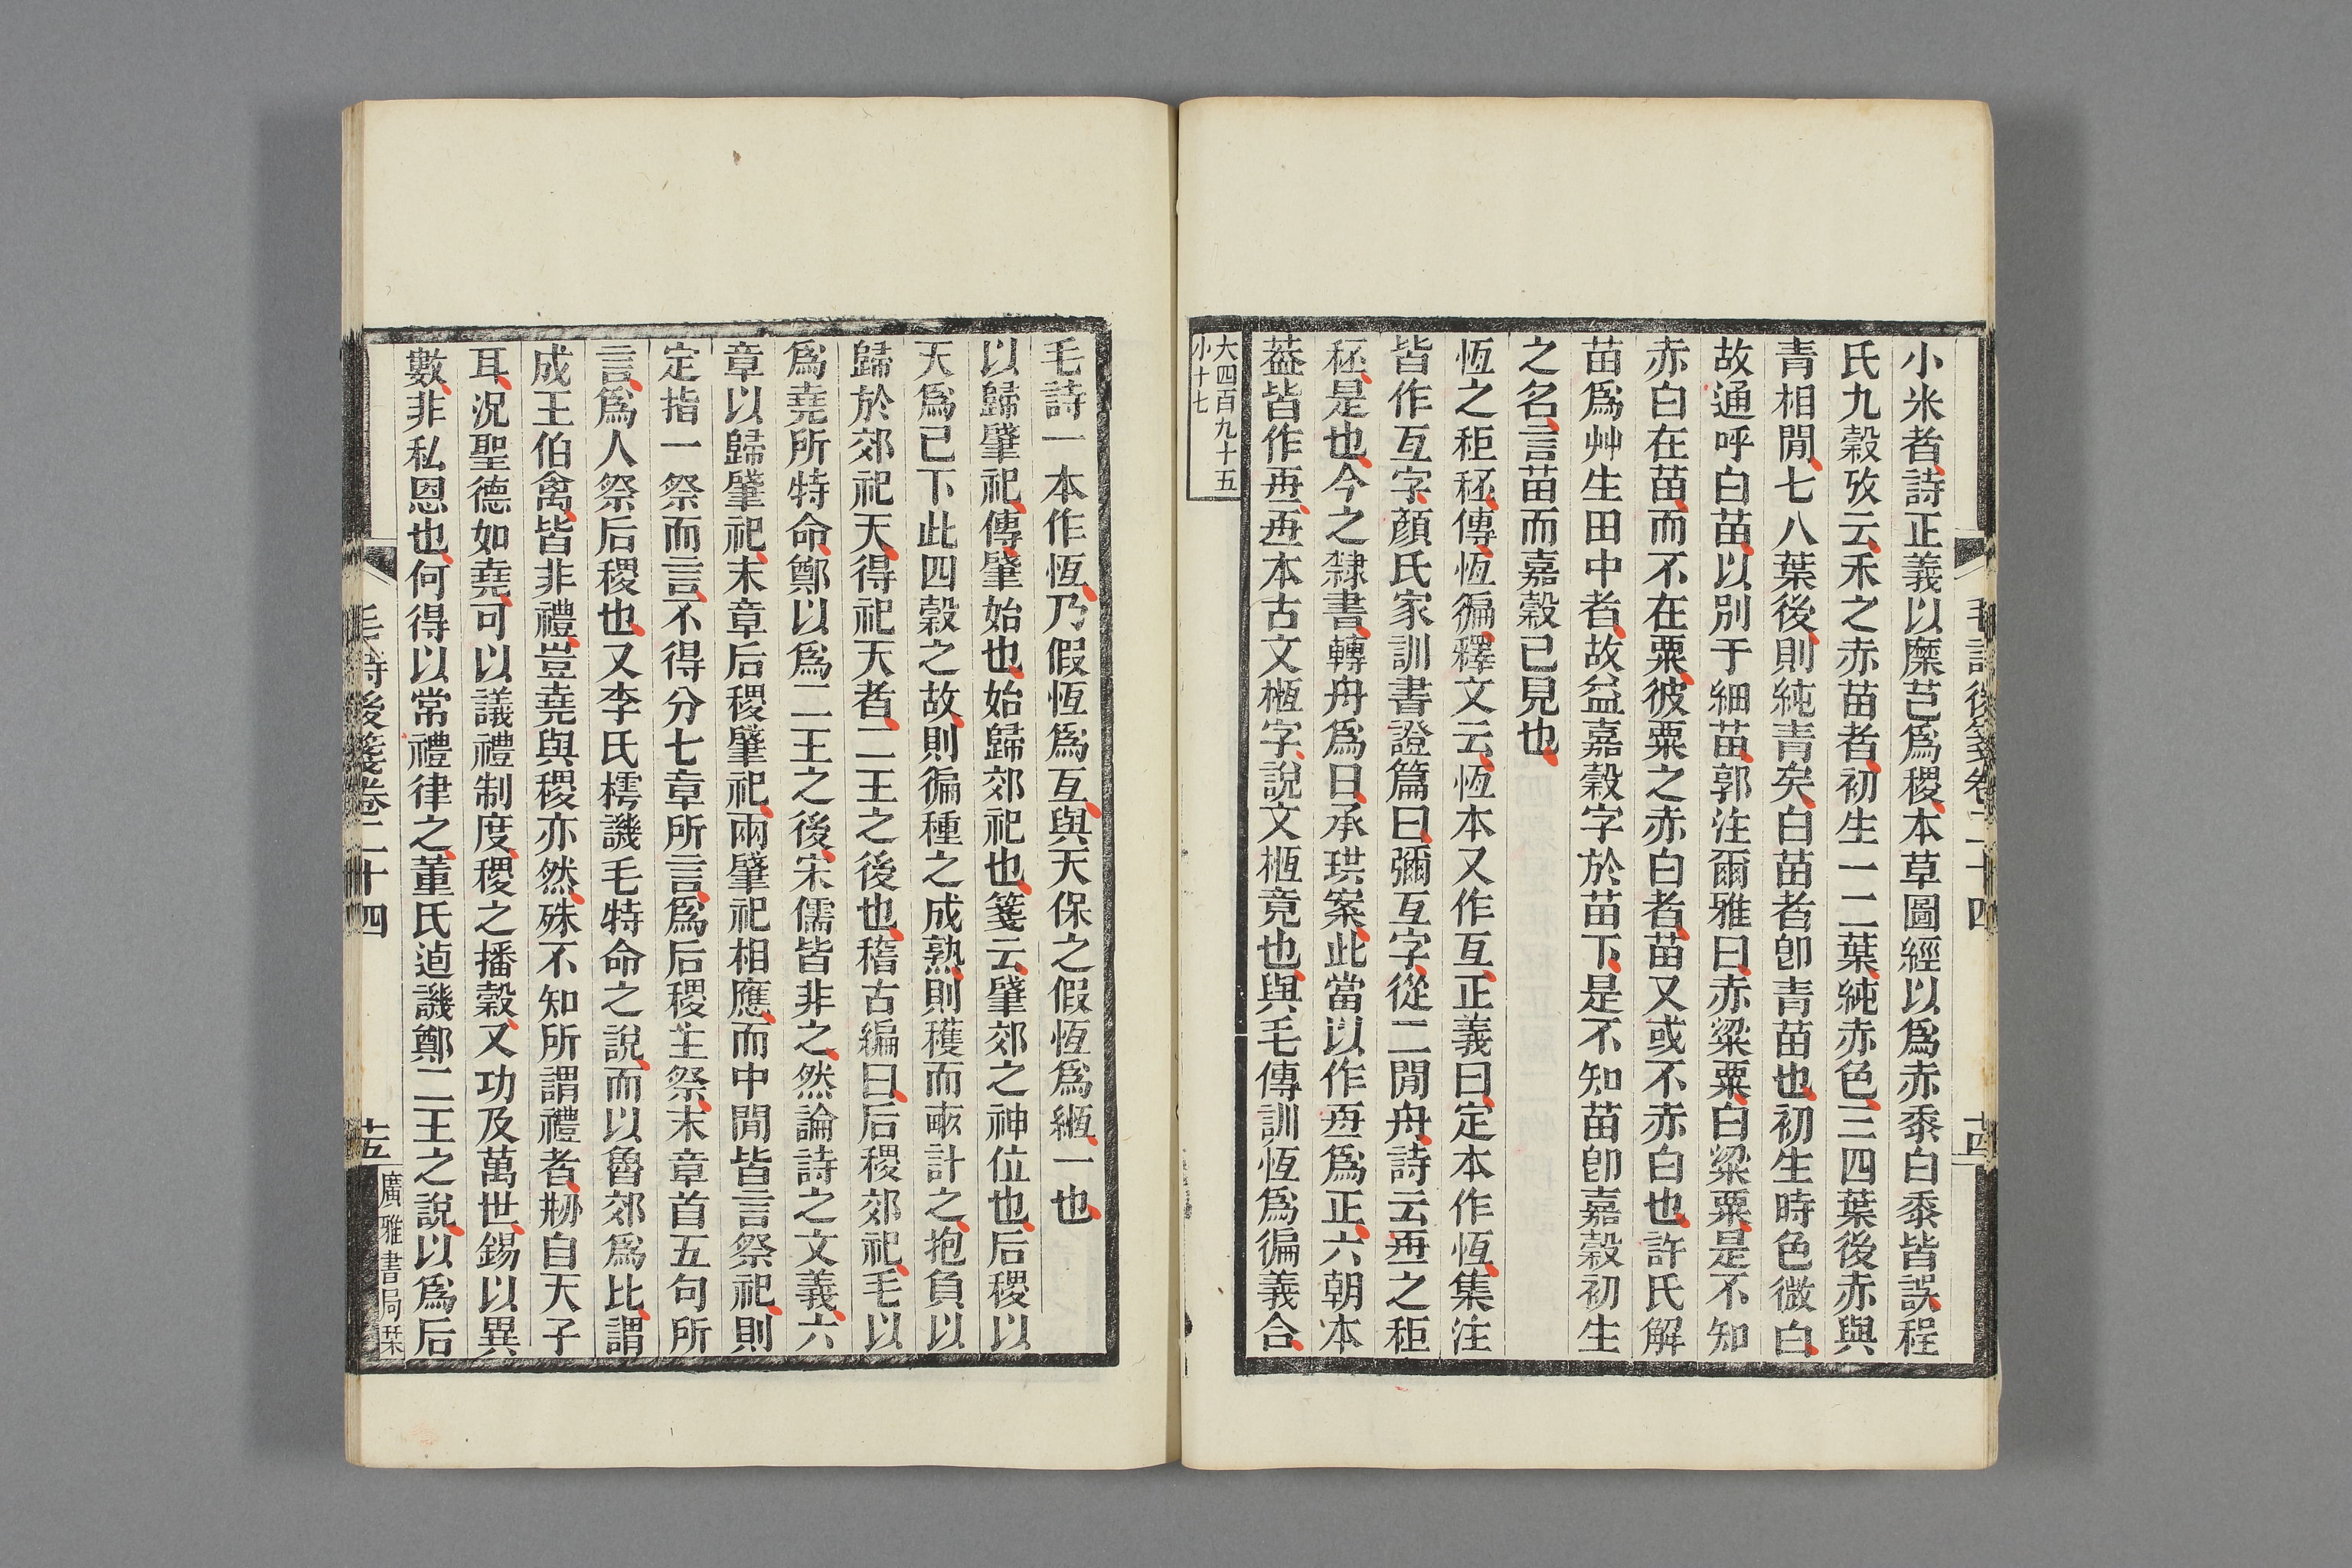 小米者詩正義以穈芑爲稷本草圖經以爲赤黍白黍皆誤程
氏九穀攷云禾之赤苗者初生一二葉純赤色三四葉後赤與
青相閒七八葉後則純青矣白苗者卽青苗也初生時色微白
故通呼白苗以別于細苗郭注爾雅曰赤粱粟白粱粟是不知
赤白在苗而不在粟彼粟之赤白者苗又或不赤白也許氏解
苗爲艸生田中者故益嘉穀字於苗下是不知苗卽嘉穀初生
之名言苗而嘉穀已見也
恆之秬秠傳恆徧釋文云恆本又作亙正義曰定本作恆集注
皆作亙字顏氏家訓書證篇曰彌亙字從二閒舟詩云亙之秬
秠是也今之隸書轉舟爲日承珙案此當以作亙爲正六朝本
葢皆作亙亙本古文㮓字說文㮓竟也與毛傳訓恆爲徧義合
大四百九十五
小十七
毛詩一本作恆乃假恆爲亙與天保之假恆爲縆一也
以歸肇祀傳肇始也始歸郊祀也箋云肇郊之神位也后稷以
天爲已下此四穀之故則徧種之成熟則穫而畝計之抱負以
歸於郊祀天得祀天者二王之後也稽古編曰后稷郊祀毛以
爲堯所特命鄭以爲二王之後宋儒皆非之然論詩之文義六
章以歸肇祀末章后稷肇祀兩肇祀相應而中閒皆言祭祀則
定指一祭而言不得分七章所言爲后稷主祭末章首五句所
言爲人祭后稷也又李氏樗譏毛特命之說而以魯郊爲比謂
成王伯禽皆非禮豈堯與稷亦然殊不知所謂禮者剏自天子
耳況聖德如堯可以議禮制度稷之播穀又功及萬世錫以異
數非私恩也何得以常禮律之董氏逌譏鄭二王之說以爲后
毛詩後箋卷二十四
十五
廣雅書局栞